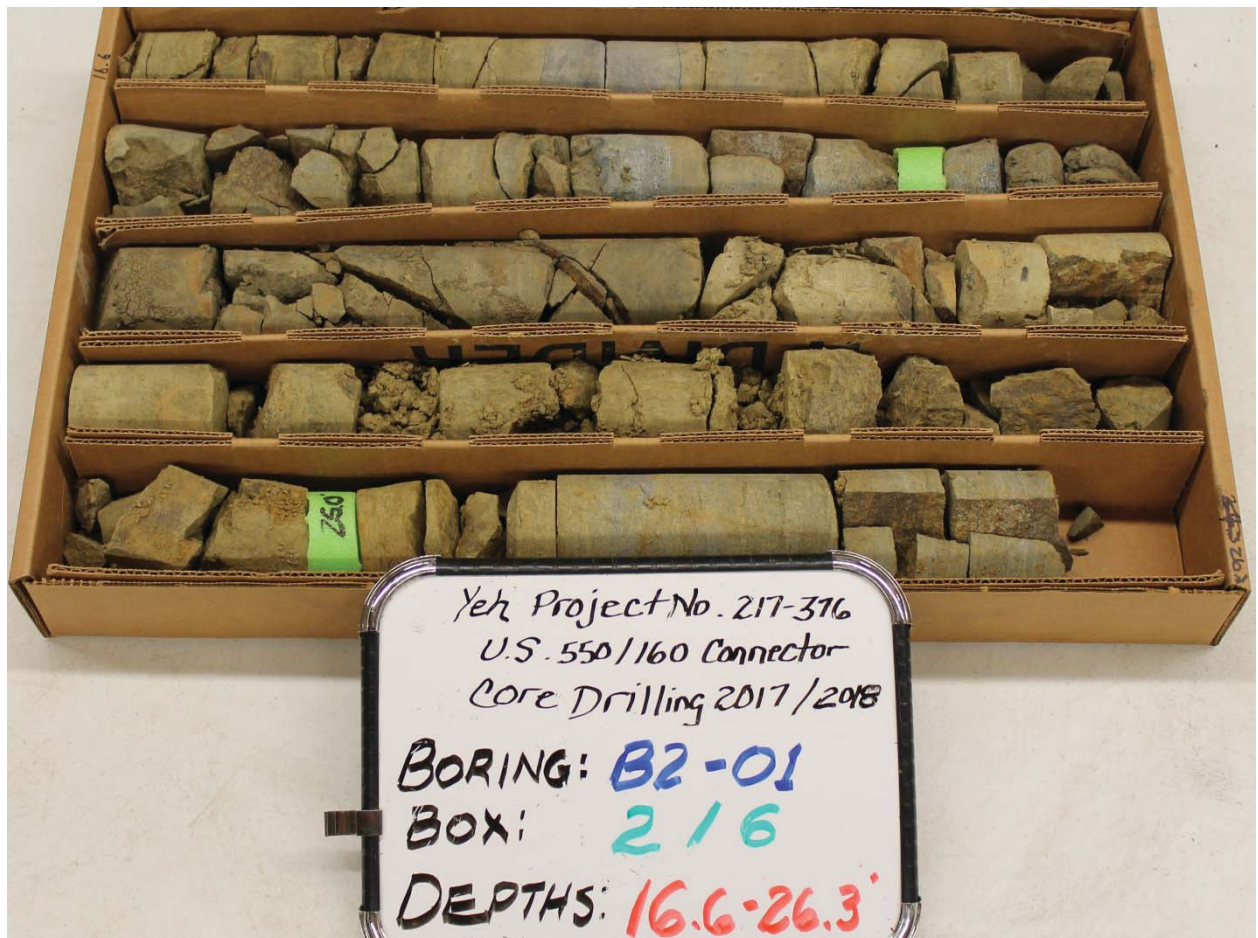 16.6
DIVIDER
25.0
Yeh Project No. 217-376
U.S. 550/160 Connector
Core Drilling 2017/2018
BORING: B2-01
BOX: 2/6
DEPTHS: 16.6-26.3'